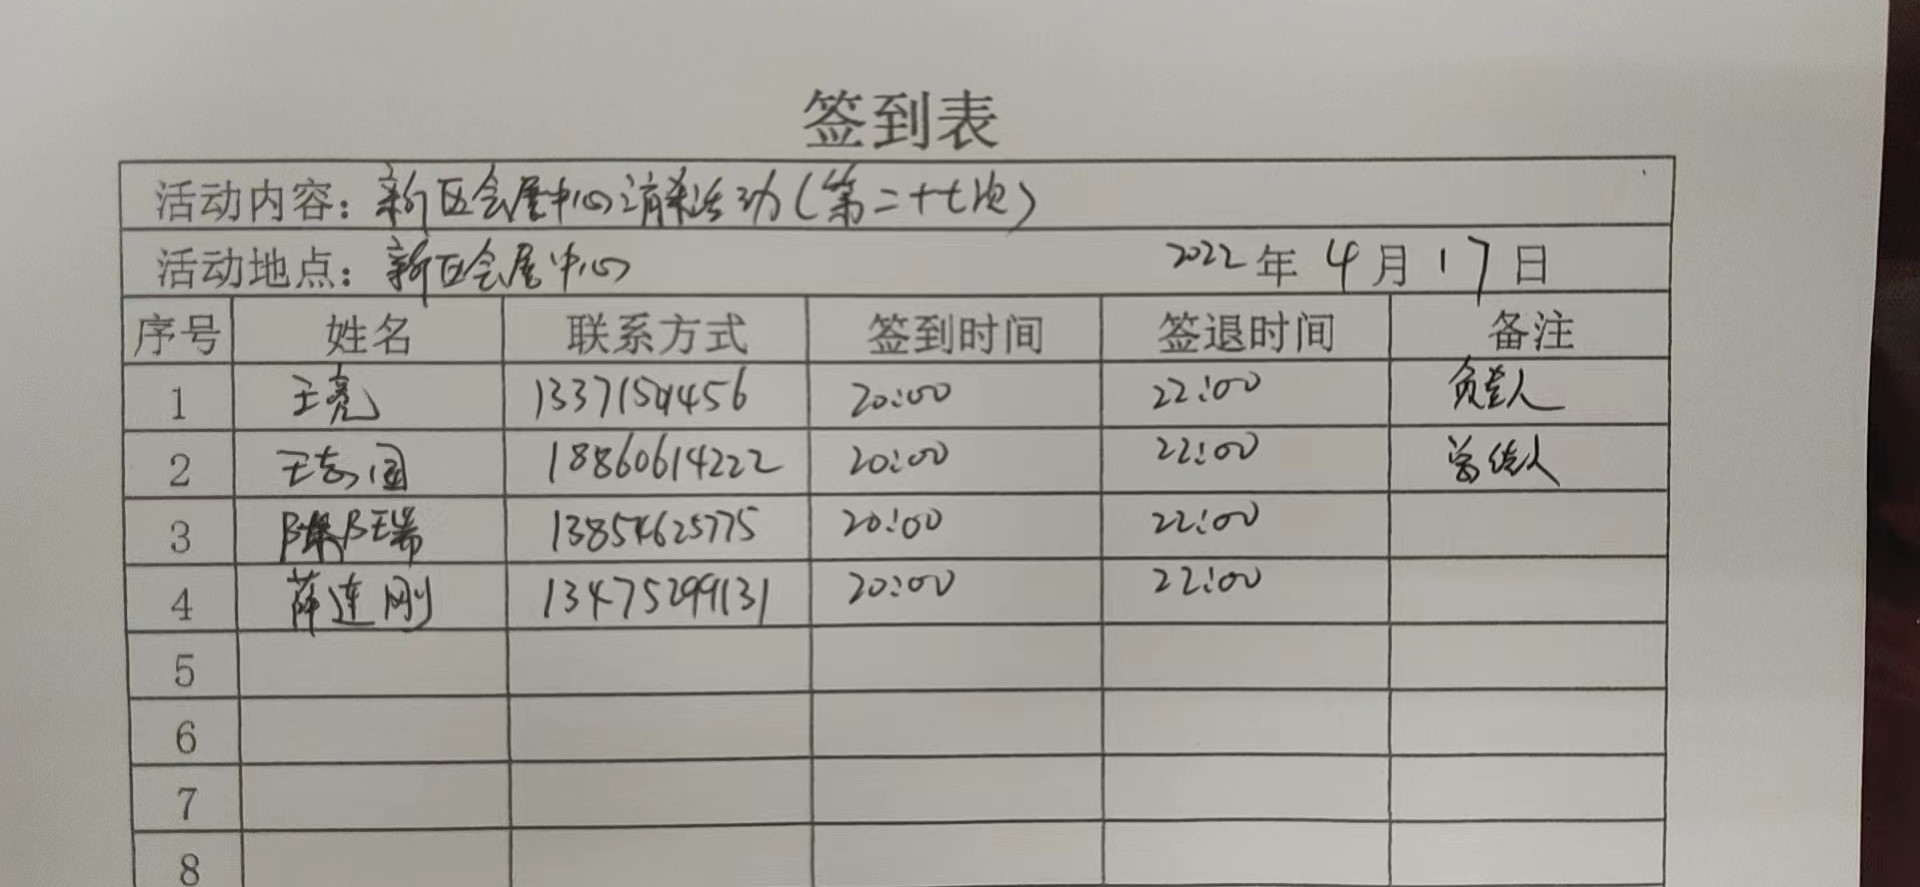 签到表
活动内容：新区会展中心消杀活动（第二十七次）
活动地点：新区会展中心 2022年4月17日
序号 姓名 联系方式 签到时间 签退时间 备注
1 王亮 20:00 22:00 负责人
2 王志国 18860614222 20:00 22:00
3 13854625775 20:00 22:00
4 薛连刚 13475299131 20:00 22:00
5
6
7
8